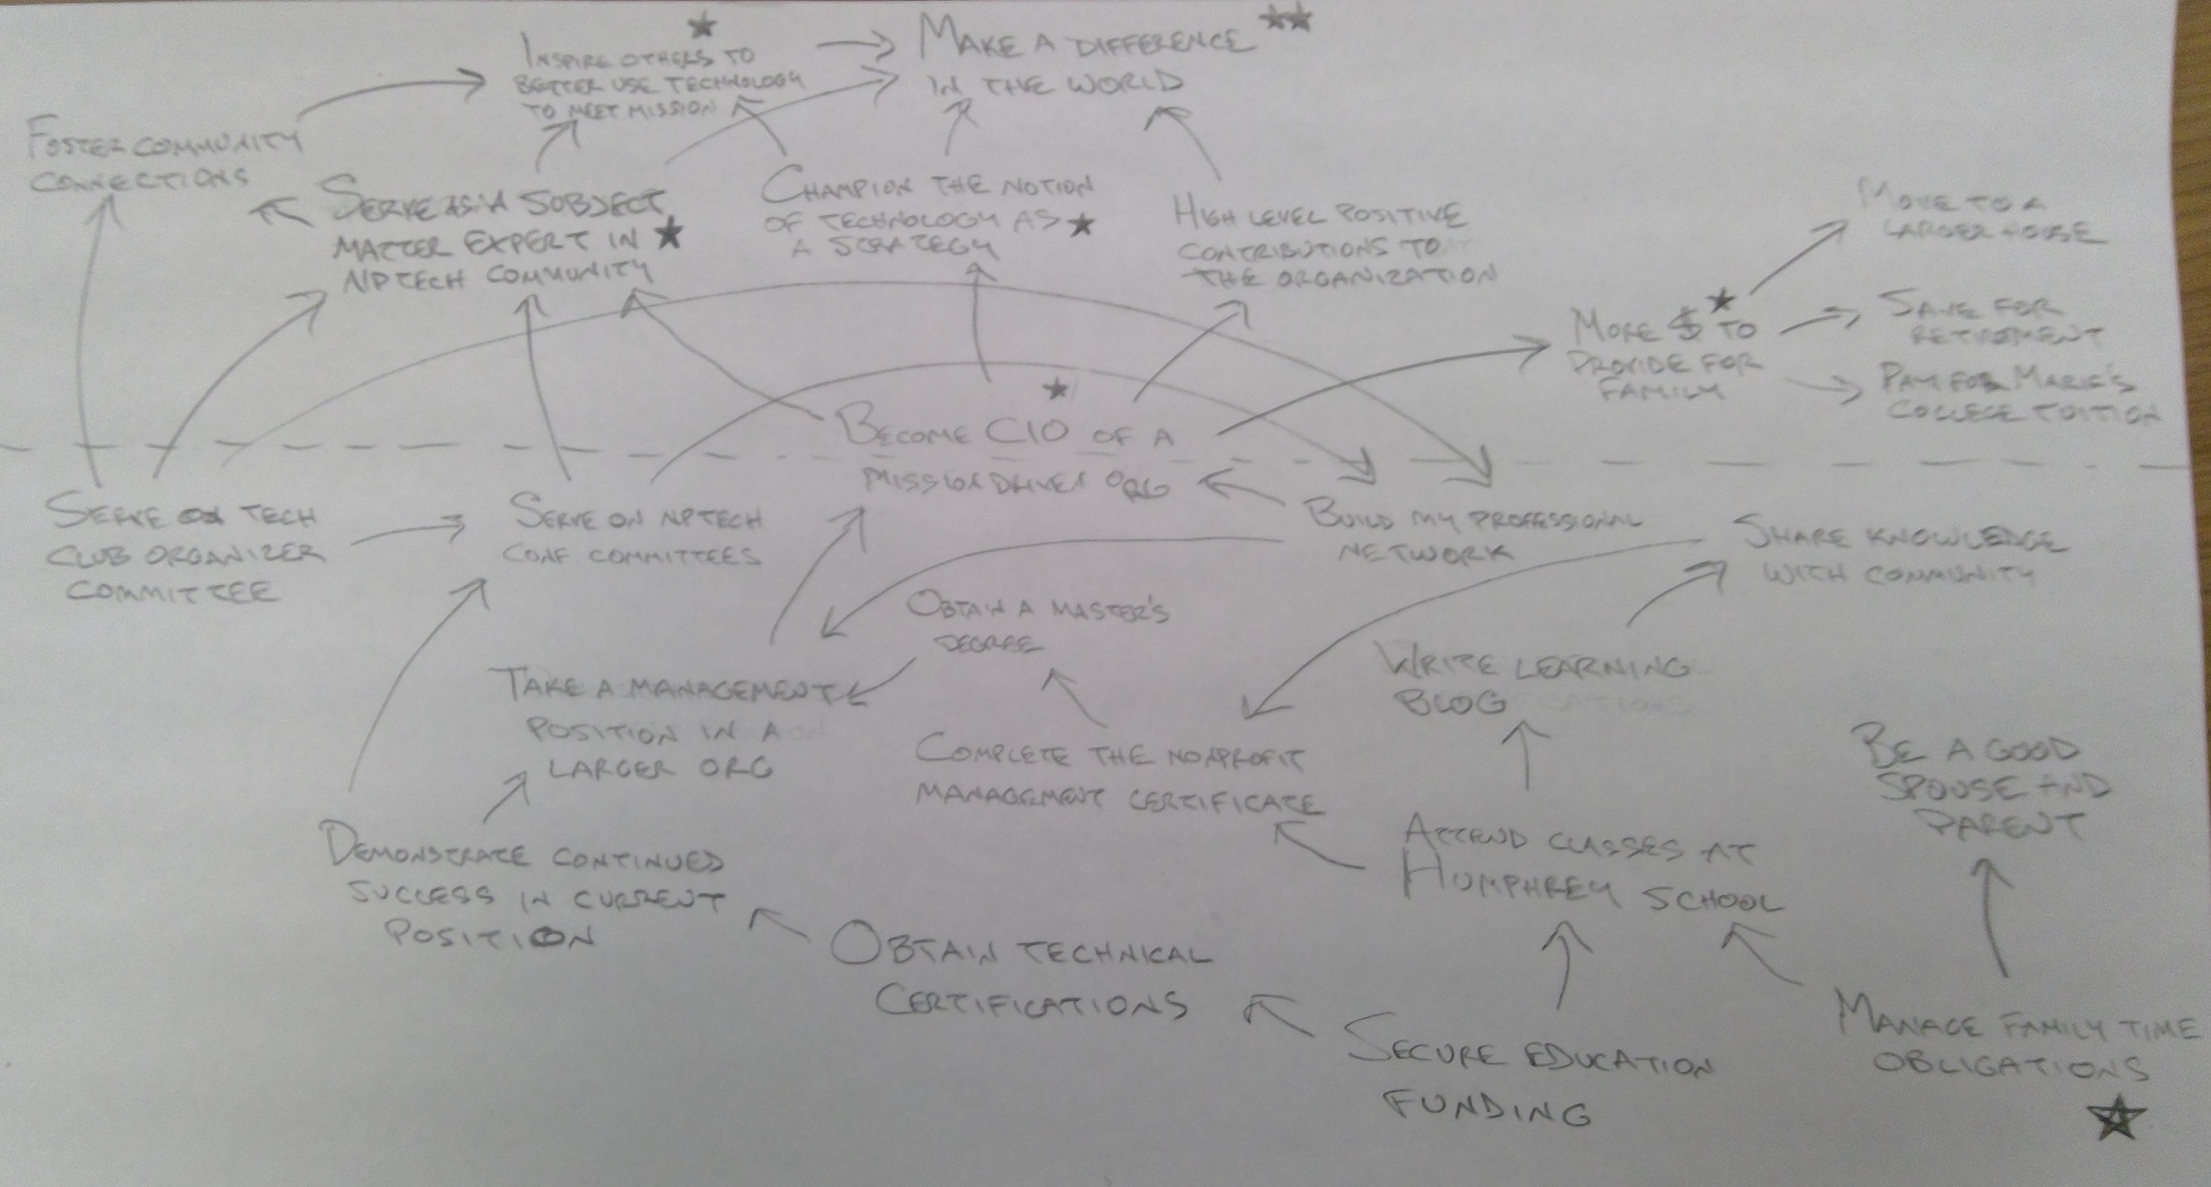 INSPIRE OTHERS TO
BETTER USE TECHNOLOGY
TO MEET MISSION
MAKE A DIFFERENCE
IN THE WORLD
FOSTER COMMUNITY
CONNECTIONS
SERVE AS A SUBJECT
MATTER EXPERT IN
NPTECH COMMUNITY
CHAMPION THE NOTION
OF TECHNOLOGY AS
A STRATEGY
HIGH LEVEL POSITIVE
CONTRIBUTIONS TO
THE ORGANIZATION
MORE $ TO
PROVIDE FOR
FAMILY
MOVE TO A
LARGER HOUSE
SAVE FOR
RETIREMENT
PAY FOR MARIE'S
COLLEGE TUITION
BECOME CIO OF A
MISSION DRIVEN ORG
SERVE ON TECH
CLUB ORGANIZER
COMMITTEE
SERVE ON NPTECH
CONF COMMITTEES
BUILD MY PROFESSIONAL
NETWORK
SHARE KNOWLEDGE
WITH COMMUNITY
OBTAIN A MASTER'S
DEGREE
TAKE A MANAGEMENT
POSITION IN A
LARGER ORG
WRITE LEARNING
BLOG
COMPLETE THE NONPROFIT
MANAGEMENT CERTIFICATE
BE A GOOD
SPOUSE AND
PARENT
DEMONSTRATE CONTINUED
SUCCESS IN CURRENT
POSITION
ATTEND CLASSES AT
HUMPHREY SCHOOL
OBTAIN TECHNICAL
CERTIFICATIONS
SECURE EDUCATION
FUNDING
MANAGE FAMILY TIME
OBLIGATIONS